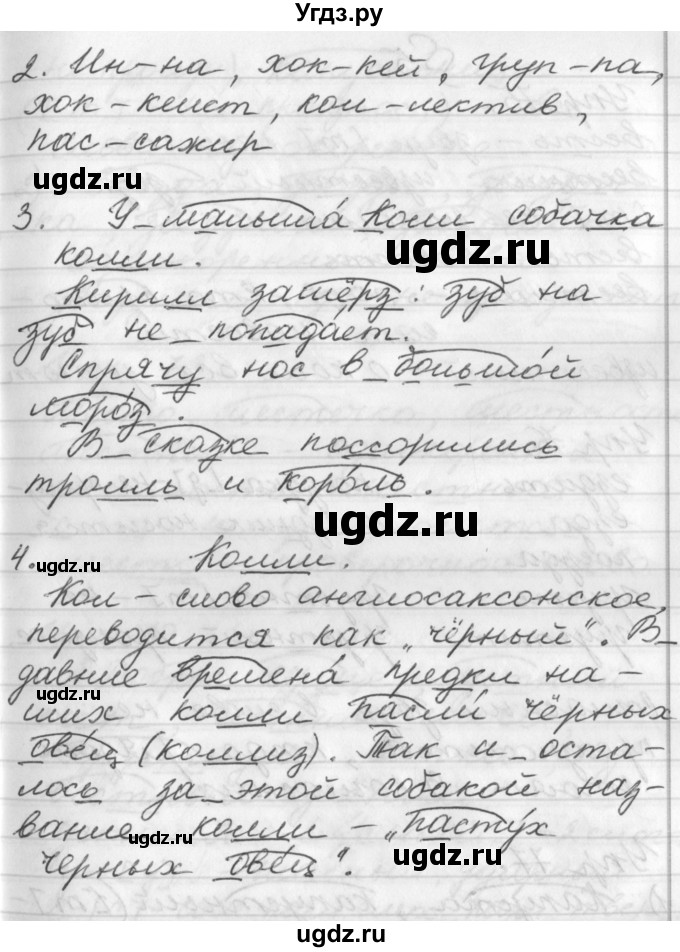 Угдз.ру
2. Ин-на, хок-кей, груп-па,
хок-кеист, кол-лектив,
пас-сажир
ugdz.ru
3. У малыша́ Коли собачка
ugdz.ru
колли.
Кирилл замёрз: зуб на
зуб не попада́ет.
Спрячу нос в большо́й
моро́з.
В сказке поссорились
тролль и коро́ль.
ugdz.ru
4. Колли.
ugdz.ru
Кол - слово англосаксонское,
переводится как „чёрный". В
давние времена́ предки на-
ugdz.ru
ших колли пасли́ чёрных
ове́ц (коллиз). Так и оста-
лось за этой собакой наз-
вание колли - „пасту́х
ugdz.ru
черных ове́ц".
ugdz.ru
Угдз.ру